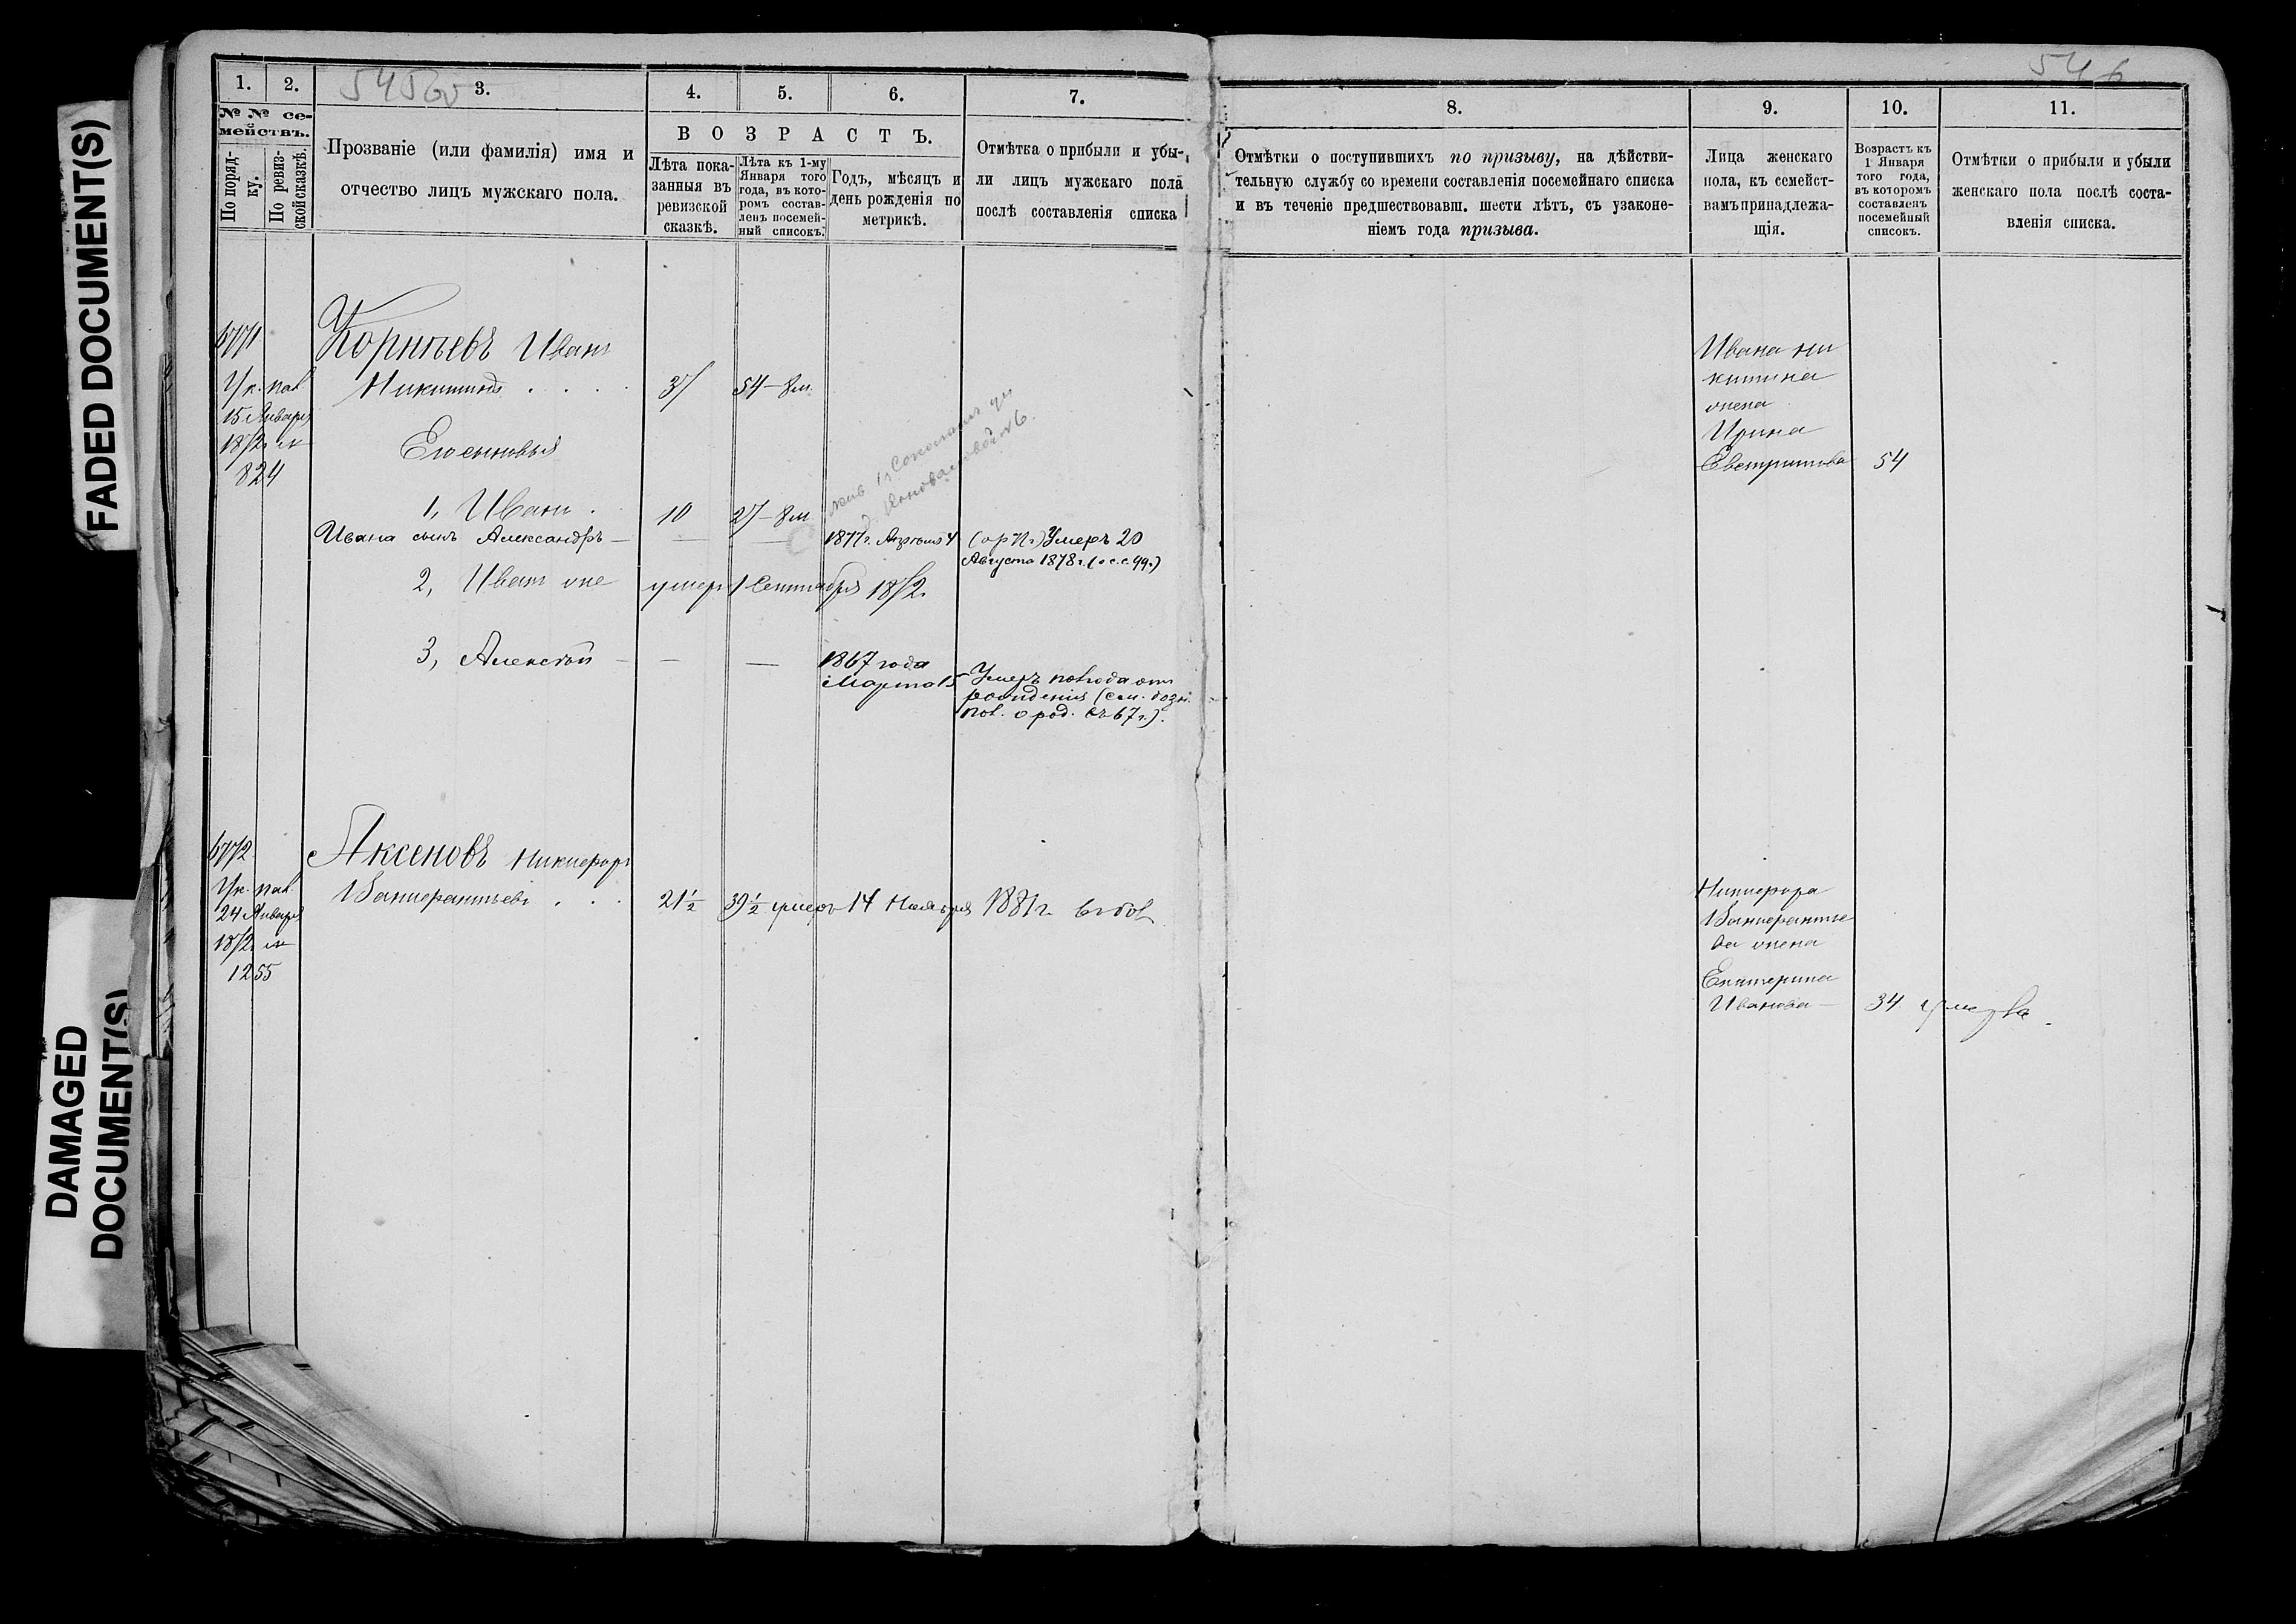 FADED DOCUMENT(S)
DAMAGED
DOCUMENT(S)
1.
2.
545об
3.
4.
5.
6.
7.
№ № се-
мействъ.
По поряд-
ку.
По ревиз-
ской сказкѣ.
Прозваніе (или фамилія) имя и
отчество лицъ мужскаго пола.
ВОЗРАСТЪ.
Лѣта пока-
занныя въ
ревизской
сказкѣ.
Лѣта къ 1-му
Января того
года, въ кото-
ромъ состав-
ленъ посемей-
ный списокъ.
Годъ, мѣсяцъ и
день рожденія по
метрикѣ.
Отмѣтка о прибыли и убы-
ли лицъ мужскаго пола
послѣ составленія списка
Корнѣевъ Иванъ
Ук. пал
15 Января
824
Никитинъ . . . .
37
54-8м.
Его сыновья
1, Иванъ .
10
27-8м
Ивана сынъ Александръ — — —
1877г. Августа 4
Умеръ 20
Августа 1878г. (о с.с. 99.)
2, Иванъ же
умеръ 1 Сентября 1872.
3, Алексѣй — — —
1867 года
Марта 15
Умеръ
рожденія
пов. о род. въ 67г.).
6772
Аксеновъ Никифоръ
Ук. пал.
24 Января
1872 г №
1255
21½
39½ умеръ 14 Ноября 1881г.
546
8.
9.
10.
11.
Отмѣтки о поступившихъ по призыву, на дѣйстви-
тельную службу со времени составленія посемейнаго списка
и въ теченіе предшествовавш. шести лѣтъ, съ узаконе-
ніемъ года призыва.
Лица женскаго
пола, къ семейст-
вамъ принадлежа-
щія.
Возрастъ къ
1 Января
того года,
въ которомъ
составленъ
посемейный
списокъ.
Отмѣтки о прибыли и убыли
женскаго пола послѣ соста-
вленія списка.
Ивана Ни
китина
жена
Ирина
54
Никифора
ва жена
Екатерина
Иванова —
34
умерла.